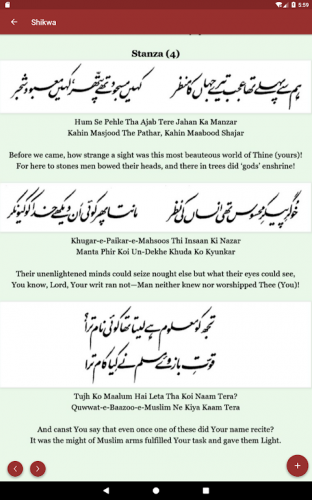 5:59
Shikwa
Stanza (4)
ہم سے پہلے تھا عجب تیرے جہاں کا منظر
کہیں مسجود تھے پتھر، کہیں معبود شجر
Hum Se Pehle Tha Ajab Tere Jahan Ka Manzar
Kahin Masjood The Pathar, Kahin Maabood Shajar
Before we came, how strange a sight was this most beauteous world of Thine (yours)!
For here to stones men bowed their heads, and there in trees did 'gods' enshrine!
خوگرِ پیکرِ محسوس تھی انساں کی نظر
مانتا پھر کوئی اَن دیکھے خدا کو کیونکر
Khugar-e-Paikar-e-Mahsoos Thi Insaan Ki Nazar
Manta Phir Koi Un-Dekhe Khuda Ko Kyunkar
Their unenlightened minds could seize nought else but what their eyes could see,
You know, Lord, Your writ ran not—Man neither knew nor worshipped Thee (You)!
تجھ کو معلوم ہے لیتا تھا کوئی نام ترا؟
قوتِ بازوئے مسلم نے کیا کام ترا
Tujh Ko Maalum Hai Leta Tha Koi Naam Tera?
Quwwat-e-Baazoo-e-Muslim Ne Kiya Kaam Tera
And canst You say that even once one of these did Your name recite?
It was the might of Muslim arms fulfilled Your task and gave them Light.